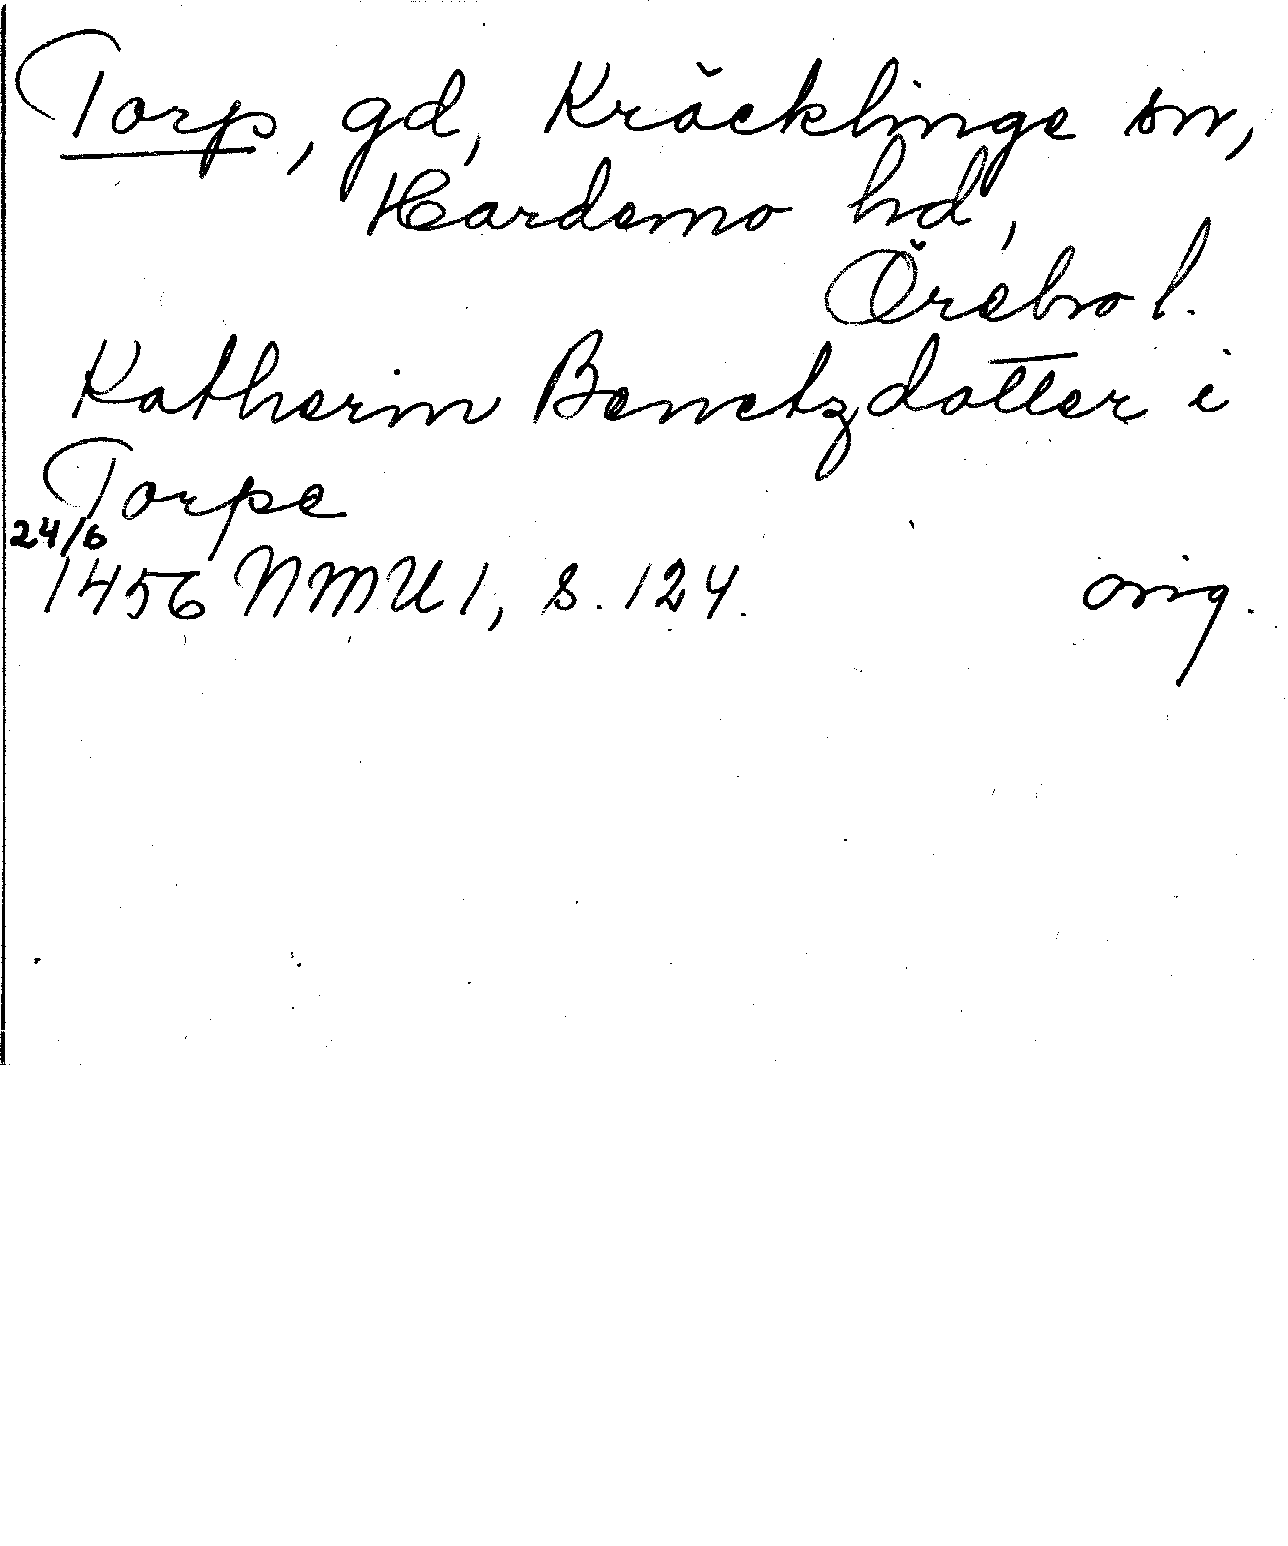 Torp, gd, Kräcklinge sn,
Hardemo hd,
Örebro l.
Katherin Benctzdotter i
Torpe
24/6
1456 NMU 1, s. 124. orig.